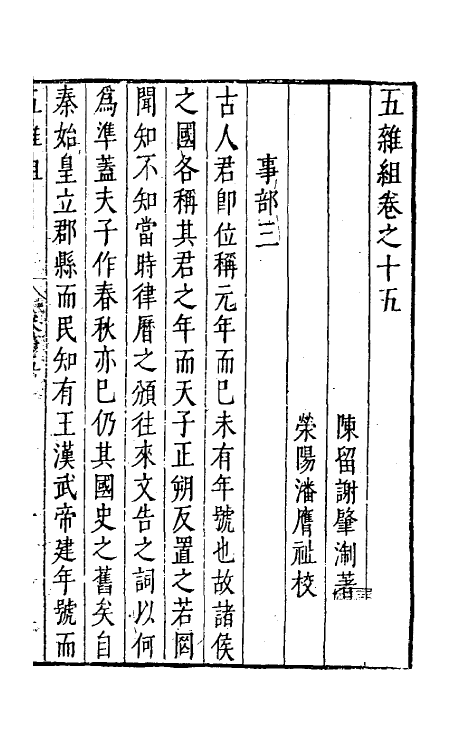 五雜組卷之十五
陳留謝肇淛著
滎陽潘膺祉校
事部三
古人君卽位稱元年而已未有年號也故諸侯
之國各稱其君之年而天子正朔反置之若罔
聞知不知當時律曆之頒往來文告之詞以何
爲準蓋夫子作春秋亦已仍其國史之舊矣自
秦始皇立郡縣而民知有王漢武帝建年號而
五雜組